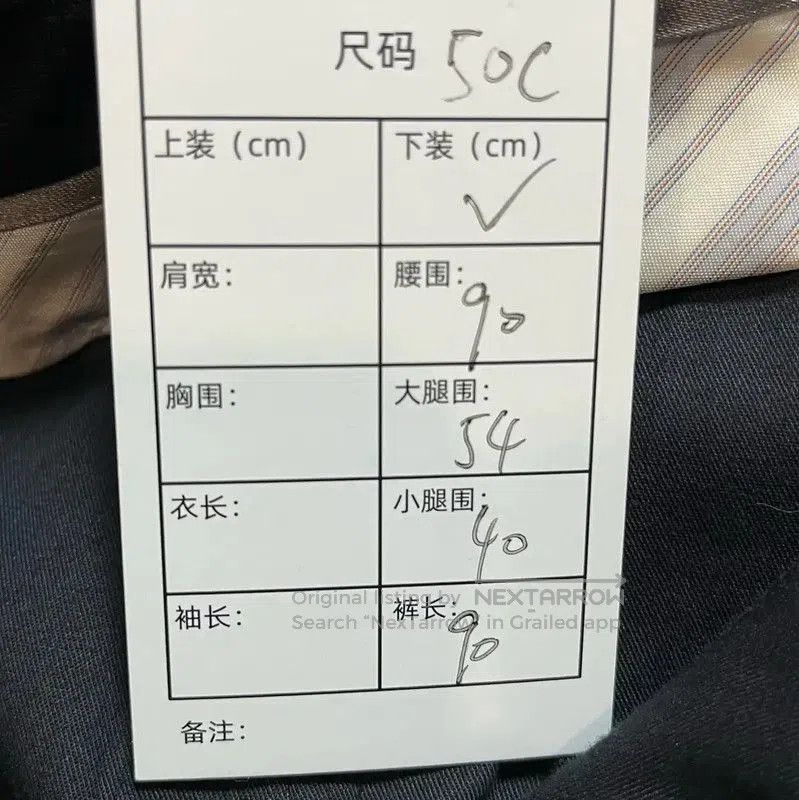 尺码 50C
上装（cm） 下装（cm）
✓
肩宽： 腰围：
90
胸围： 大腿围：
54
衣长： 小腿围：
40
袖长： 裤长：
90
备注：
Original listing by NEXTARROW
Search "NexTarrow" in Grailed app